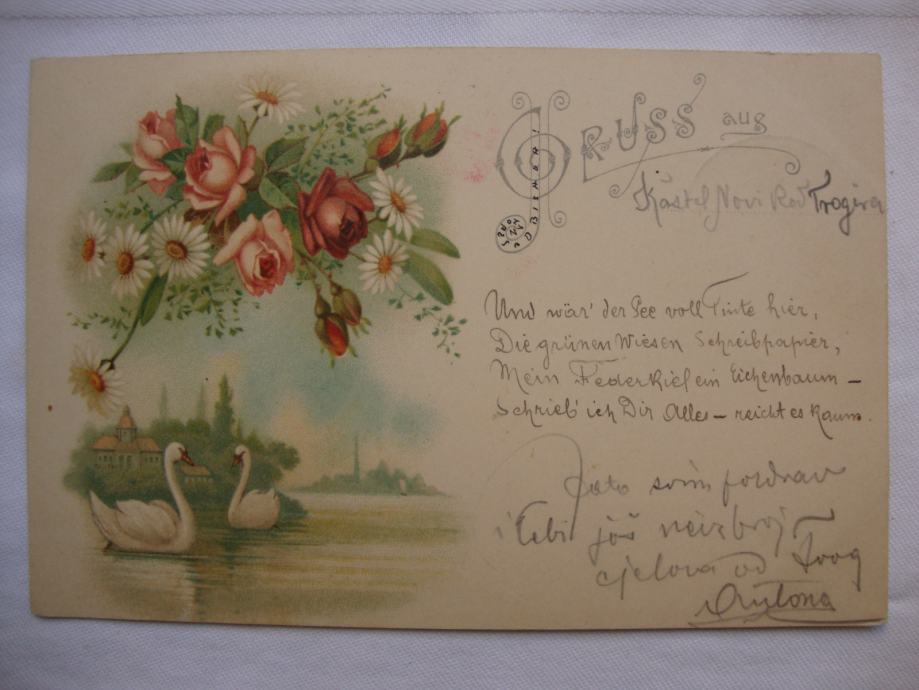 GRUSS aus
Kaštel Novi kod Trogira
Und wär' der See voll Tinte hier,
Die grünen Wiesen Schreibpapier,
Mein Federkiel ein Eichenbaum –
Schrieb' ich Dir Alles – reicht es kaum.
Zato svim pozdrav
i Tebi još neizbroj
cjelova od Tvog
Antona